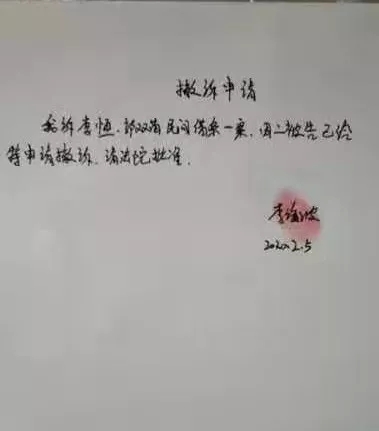 撤诉申请
我诉李恒、郭双清民间借条一案,因二被告已给
特申请撤诉,请法院批准.
李
2020.2.5